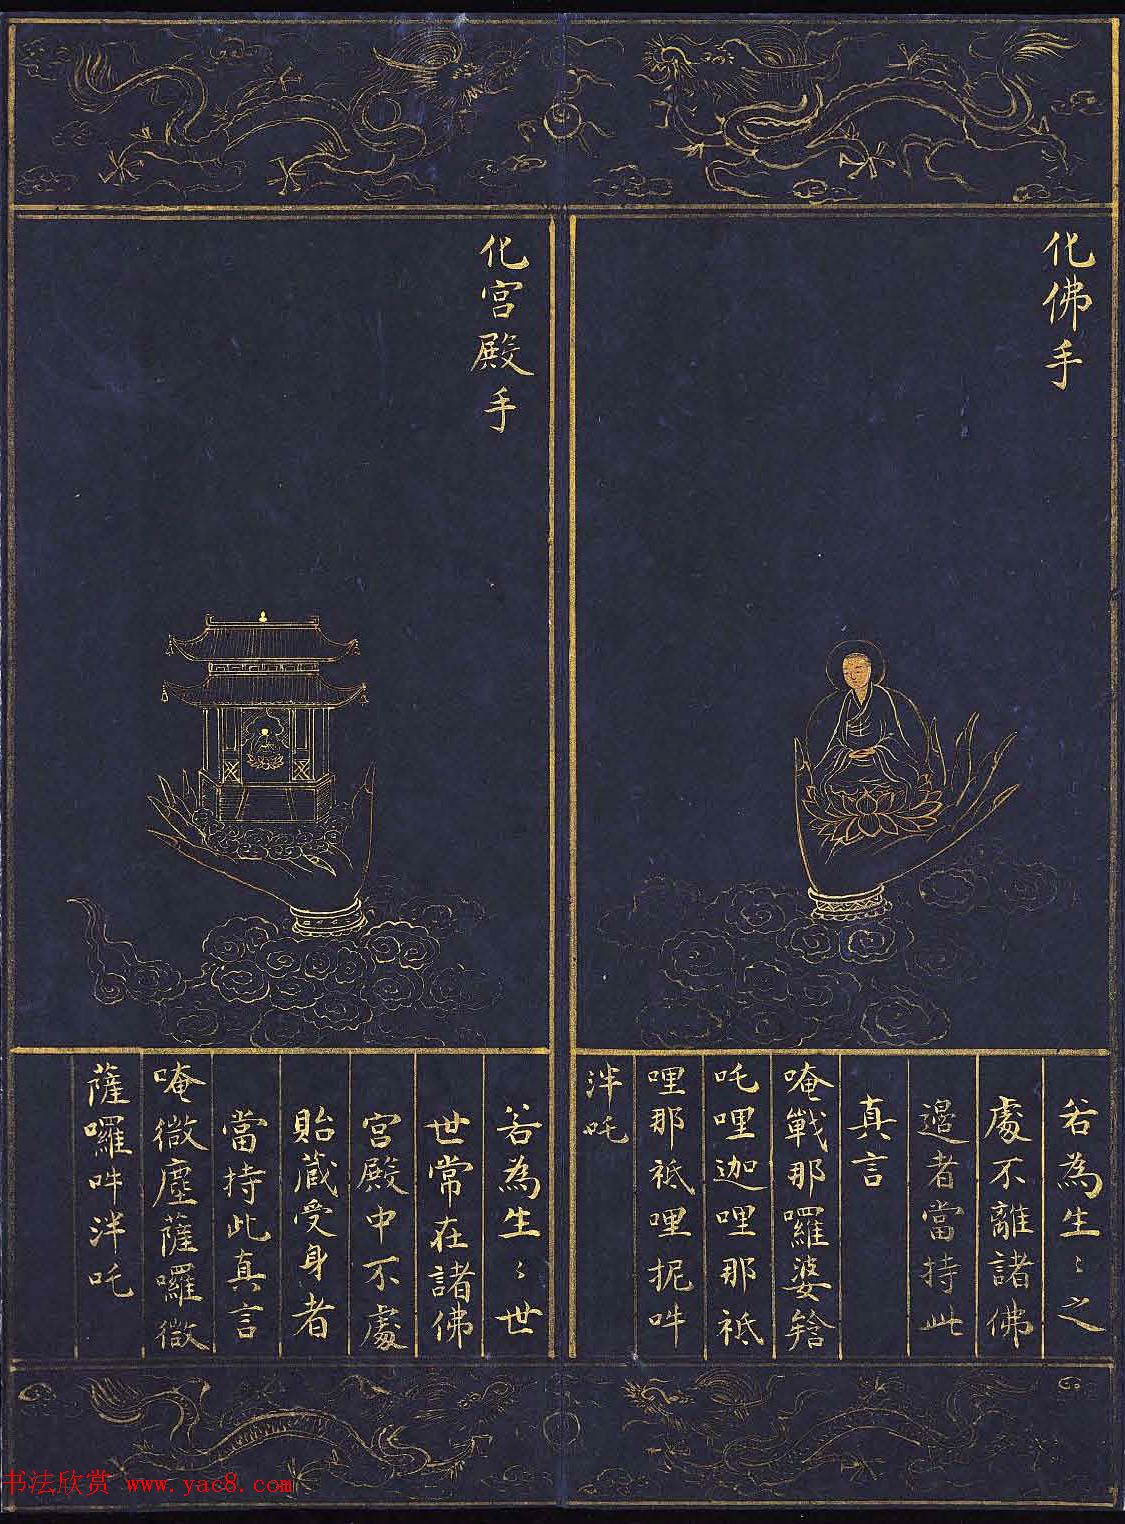 化佛手
若為生〻之
處不離諸佛
邊者當持此
真言
唵戰那囉婆𤚥
吒哩迦哩那祇
哩那祇哩抳吽
泮吒
化宮殿手
若為生〻世
世常在諸佛
宮殿中不處
胎藏受身者
當持此真言
唵微塵薩囉微
薩囉吽泮吒
书法欣赏 www.yac8.com